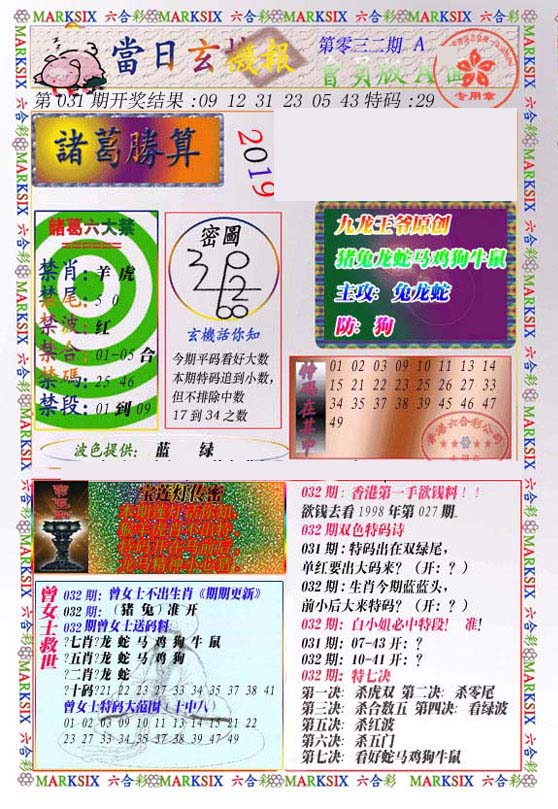 MARKSIX 六合彩 MARKSIX 六合彩 MARKSIX 六合彩 MARKSIX 六合彩
當日玄機報
第零三二期 A
會員版A面
专用章
第 031 期开奖结果 :09 12 31 23 05 43 特码 :29
諸葛勝算
2019
諸葛六大禁
禁肖: 羊 虎
禁尾: 5 0
禁波: 红
禁合: 01-05 合
禁碼: 25 46
禁段: 01 到 09
密圖
玄機話你知
今期平码看好大数
本期特码追到小数,
但不排除中数
17 到 34 之数
九龙王爷原创
猪兔龙蛇马鸡狗牛鼠
主攻: 兔龙蛇
防: 狗
特码在其中
01 02 03 09 10 11 13 14
15 21 22 23 25 26 27 33
34 35 37 38 39 45 46 47
49
波色提供: 蓝 绿
宝莲灯传密
龙马精神小心猜
曾女士救世
032 期: 曾女士不出生肖《期期更新》
032 期: (猪 兔) 准 开
032 期曾女士送码料:
?七肖?龙 蛇 马 鸡 狗 牛 鼠
?五肖?龙 蛇 马 鸡 狗
?二肖?龙 蛇
?十码?21 22 23 27 33 34 35 37 38 41
曾女士特码大范围 (十中八)
01 02 03 09 10 11 13 14 15 21 22
23 27 33 34 35 37 38 39 47 49
032 期: 香港第一手欲钱料!!
欲钱去看 1998 年第 027 期.
032 期双色特码诗
031 期: 特码出在双绿尾,
单红要出大码来? (开: ?)
032 期: 生肖今期蓝蓝头,
前小后大来特码? (开: ?)
032 期: 白小姐必中特段! 准!
031 期: 07-43 开: ?
032 期: 10-41 开: ?
032 期: 特七决
第一决: 杀虎双 第二决: 杀零尾
第三决: 杀合数五 第四决: 看绿波
第五决: 杀红波
第六决: 杀五门
第七决: 看好蛇马鸡狗牛鼠
MARKSIX 六合彩 MARKSIX 六合彩 MARKSIX 六合彩 MARKSIX 六合彩